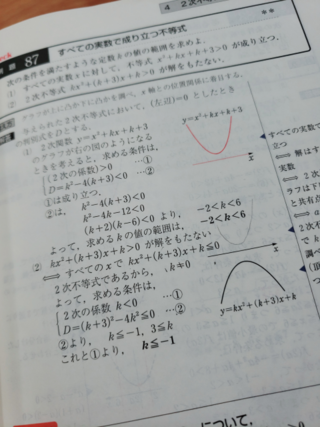 4 2次不
例題 87 すべての実数で成り立つ不等式
★★
次の条件を満たすような定数kの値の範囲を求めよ。
(1) すべての実数xに対して,不等式 x²+kx+k+3>0 が成り立つ。
(2) 2次不等式 kx²+(k+3)x+k>0 が解をもたない。
グラフが上に凸か下に凸かを調べ,x軸との位置関係に着目する。
与えられた2次不等式において,(左辺)=0 としたとき
の判別式をDとする。
(1) 2次関数 y=x²+kx+k+3
のグラフが右の図のようになる
ときを考えると,求める条件は,
(2次の係数)>0 …①
D=k²-4(k+3)<0 …②
①は成り立つ。
②は, k²-4(k+3)<0
k²-4k-12<0
(k+2)(k-6)<0 より, -2<k<6
よって,求めるkの値の範囲は, -2<k<6
y=x²+kx+k+3
x
(2) kx²+(k+3)x+k>0 が解をもたない
⟺ すべてのxで kx²+(k+3)x+k≦0
2次不等式であるから, k≠0
よって,求める条件は,
2次の係数 k<0 …①
D=(k+3)²-4k²≦0 …②
②より, k≦-1, 3≦k
これと①より, k≦-1
x
y=kx²+(k+3)x+k
すべての実数で
⟺ 解はす
実数
2次
ラフは下
と共有点
2次不
で k
調べ
について,